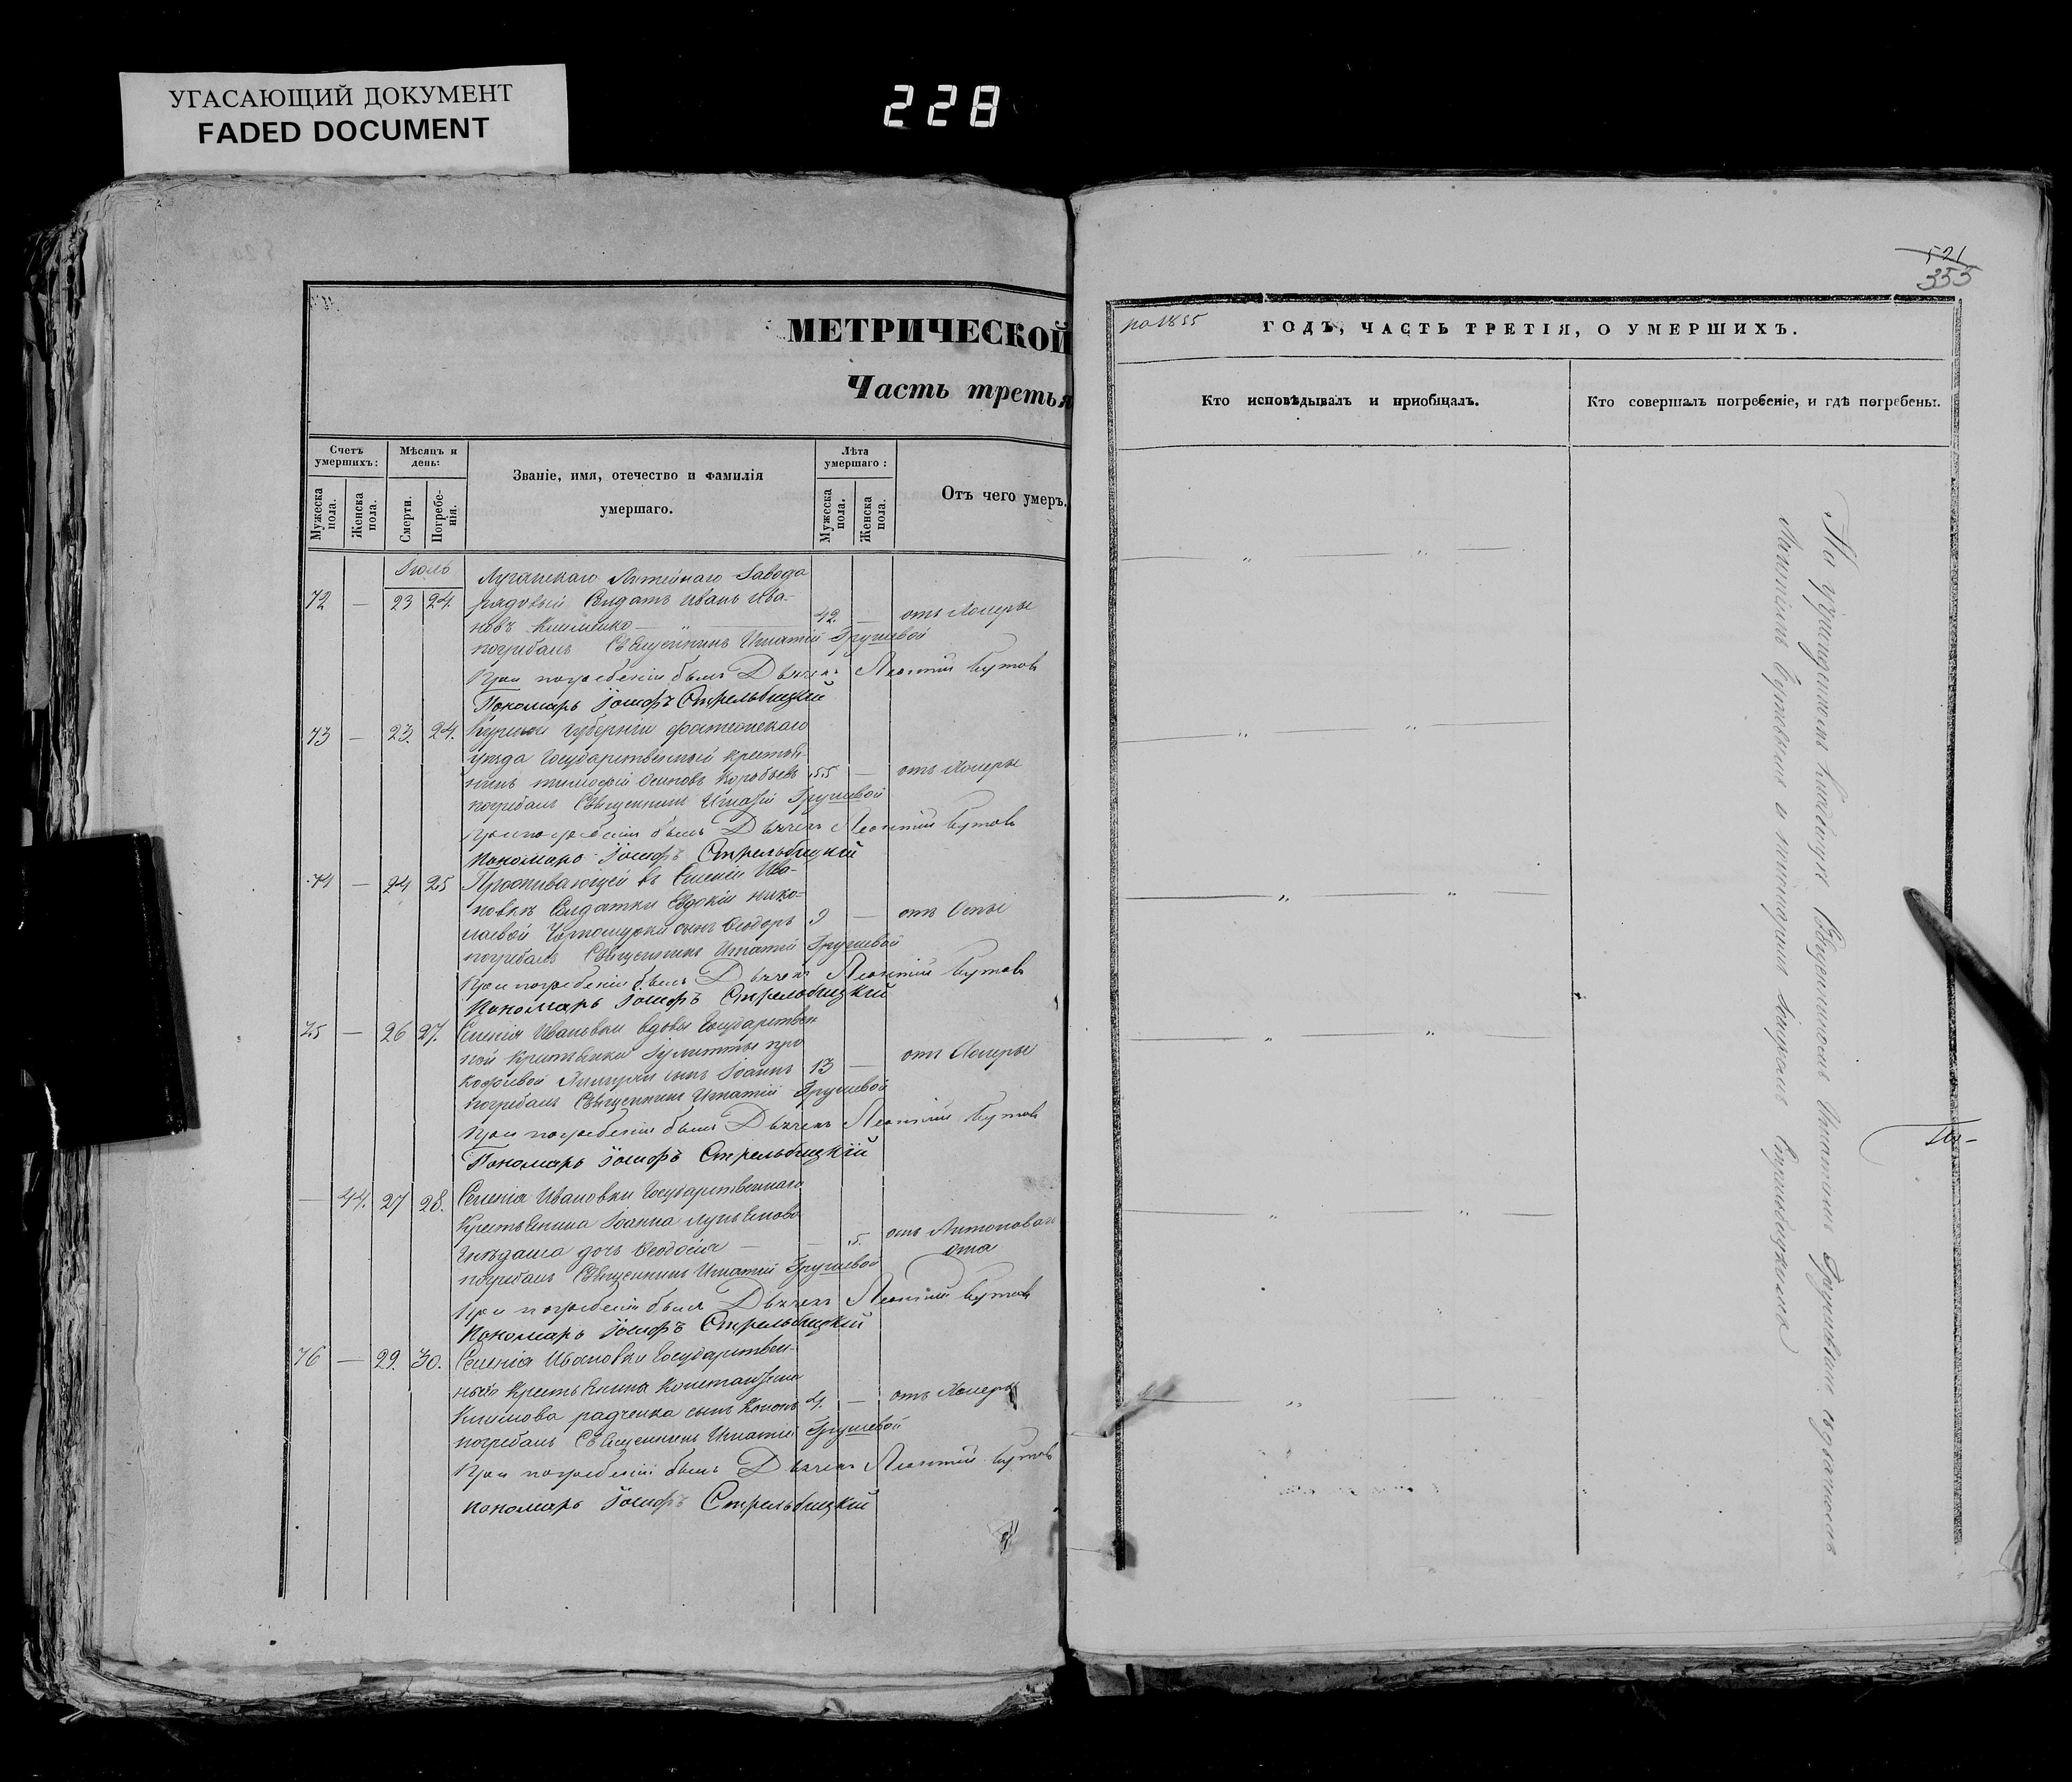 УГАСАЮЩИЙ ДОКУМЕНТ
FADED DOCUMENT
228
МЕТРИЧЕСКОЙ
Часть третья
Счетъ умершихъ:
Мужеска пола.
Женска пола.
Мѣсяцъ и день:
Смерти.
Погребенія.
Званіе, имя, отечество и фамилія
умершаго.
Лѣта умершаго:
Мужеска пола.
Женска пола.
Отъ чего умеръ.
Іюль
72 — 23 24. Луганскаго Литейнаго Завода
рядовый Солдатъ Иванъ Ива-
новъ Клименко — 42. — отъ Холеры
погребалъ Священникъ Игнатій Грушевой
При погребеніи былъ Дьячекъ Леонтій Бутовъ
Пономарь Іосифъ Стрельбицкій
73 — 23. 24. Курской Губерніи Фатежскаго
уѣзда Государственный крестья-
нинъ тимофій Осиповъ Коробьевъ 55 — отъ Холеры
погребалъ Священникъ Игнатій Грушевой
при погребеніи былъ Дьячекъ Леонтій Бутовъ
Пономарь Іосифъ Стрельбицкій
74 — 24 25 Проживающей въ Селеніи Ива-
новкѣ Солдатки Евдокіи нико-
лаевой сынъ Феодоръ 9 — отъ Оспы
погребалъ Священникъ Игнатій Грушевой
При погребеніи былъ Дьячекъ Леонтій Бутовъ
Пономарь Іосифъ Стрельбицкій
75 — 26 27. Селенія Ивановки вдовы Государствен
ной крестьянки Іулитты про
кофіевой сынъ Іоаннъ 13 — отъ Холеры
погребалъ Священникъ Игнатій Грушевой
При погребеніи былъ Дьячекъ Леонтій Бутовъ
Пономарь Іосифъ Стрельбицкій
— 44. 27 28. Селенія Ивановки Государственнаго
Крестьянина Іоанна
дочь Феодосія — — 5. отъ Антонова
огня
погребалъ Священникъ Игнатій Грушевой
При погребеніи былъ Дьячекъ Леонтій Бутовъ
Пономарь Іосифъ Стрельбицкій
76 — 29. 30. Селенія Ивановки Государствен-
наго Крестьянина Константина
Климова радченка сынъ Кононъ 4. — отъ Холеры
погребалъ Священникъ Игнатій Грушевой
При погребеніи былъ Дьячекъ Леонтій Бутовъ
Пономарь Іосифъ Стрельбицкій
521
355
на 1855
ГОДЪ, ЧАСТЬ ТРЕТІЯ, О УМЕРШИХЪ.
Кто исповѣдывалъ и пріобщалъ.
Кто совершалъ погребеніе, и гдѣ погребены.
На учрежденномъ кладбищѣ Священникомъ Игнатіемъ Грушевымъ съ дьячкомъ
Леонтіемъ Бутовымъ и пономаремъ Іосифомъ Стрельбицкимъ